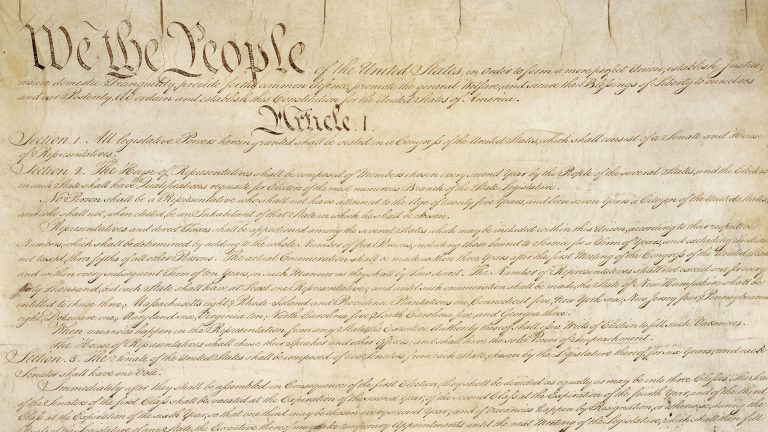 We the People of the United States, in Order to form a more perfect Union, establish Justice,
insure domestic Tranquility, provide for the common defence, promote the general Welfare, and secure the Blessings of Liberty to ourselves
and our Posterity, do ordain and establish this Constitution for the United States of America.
Article. I.
Section. 1. All legislative Powers herein granted shall be vested in a Congress of the United States, which shall consist of a Senate and House
of Representatives.
Section. 2. The House of Representatives shall be composed of Members chosen every second Year by the People of the several States, and the Electors
in each State shall have Qualifications requisite for Electors of the most numerous Branch of the State Legislature.
No Person shall be a Representative who shall not have attained to the Age of twenty five Years, and been seven Years a Citizen of the United States,
and who shall not, when elected, be an Inhabitant of that State in which he shall be chosen.
Representatives and direct Taxes shall be apportioned among the several States which may be included within this Union, according to their respective
Numbers, which shall be determined by adding to the whole Number of free Persons, including those bound to Service for a Term of Years, and excluding Indians
not taxed, three fifths of all other Persons. The actual Enumeration shall be made within three Years after the first Meeting of the Congress of the United States,
and within every subsequent Term of ten Years, in such Manner as they shall by Law direct. The Number of Representatives shall not exceed one for every
thirty Thousand, but each State shall have at Least one Representative; and until such enumeration shall be made, the State of New Hampshire shall be
entitled to chuse three, Massachusetts eight, Rhode-Island and Providence Plantations one, Connecticut five, New-York six, New Jersey four, Pennsylvania
eight, Delaware one, Maryland six, Virginia ten, North Carolina five, South Carolina five, and Georgia three.
When vacancies happen in the Representation from any State, the Executive Authority thereof shall issue Writs of Election to fill such Vacancies.
The House of Representatives shall chuse their Speaker and other Officers; and shall have the sole Power of Impeachment.
Section. 3. The Senate of the United States shall be composed of two Senators from each State, chosen by the Legislature thereof, for six Years; and each
Senator shall have one Vote.
Immediately after they shall be assembled in Consequence of the first Election, they shall be divided as equally as may be into three Classes. The Seats
of the Senators of the first Class shall be vacated at the Expiration of the second Year, of the second Class at the Expiration of the fourth Year, and of the third
Class at the Expiration of the sixth Year, so that one third may be chosen every second Year; and if Vacancies happen by Resignation, or otherwise, during the